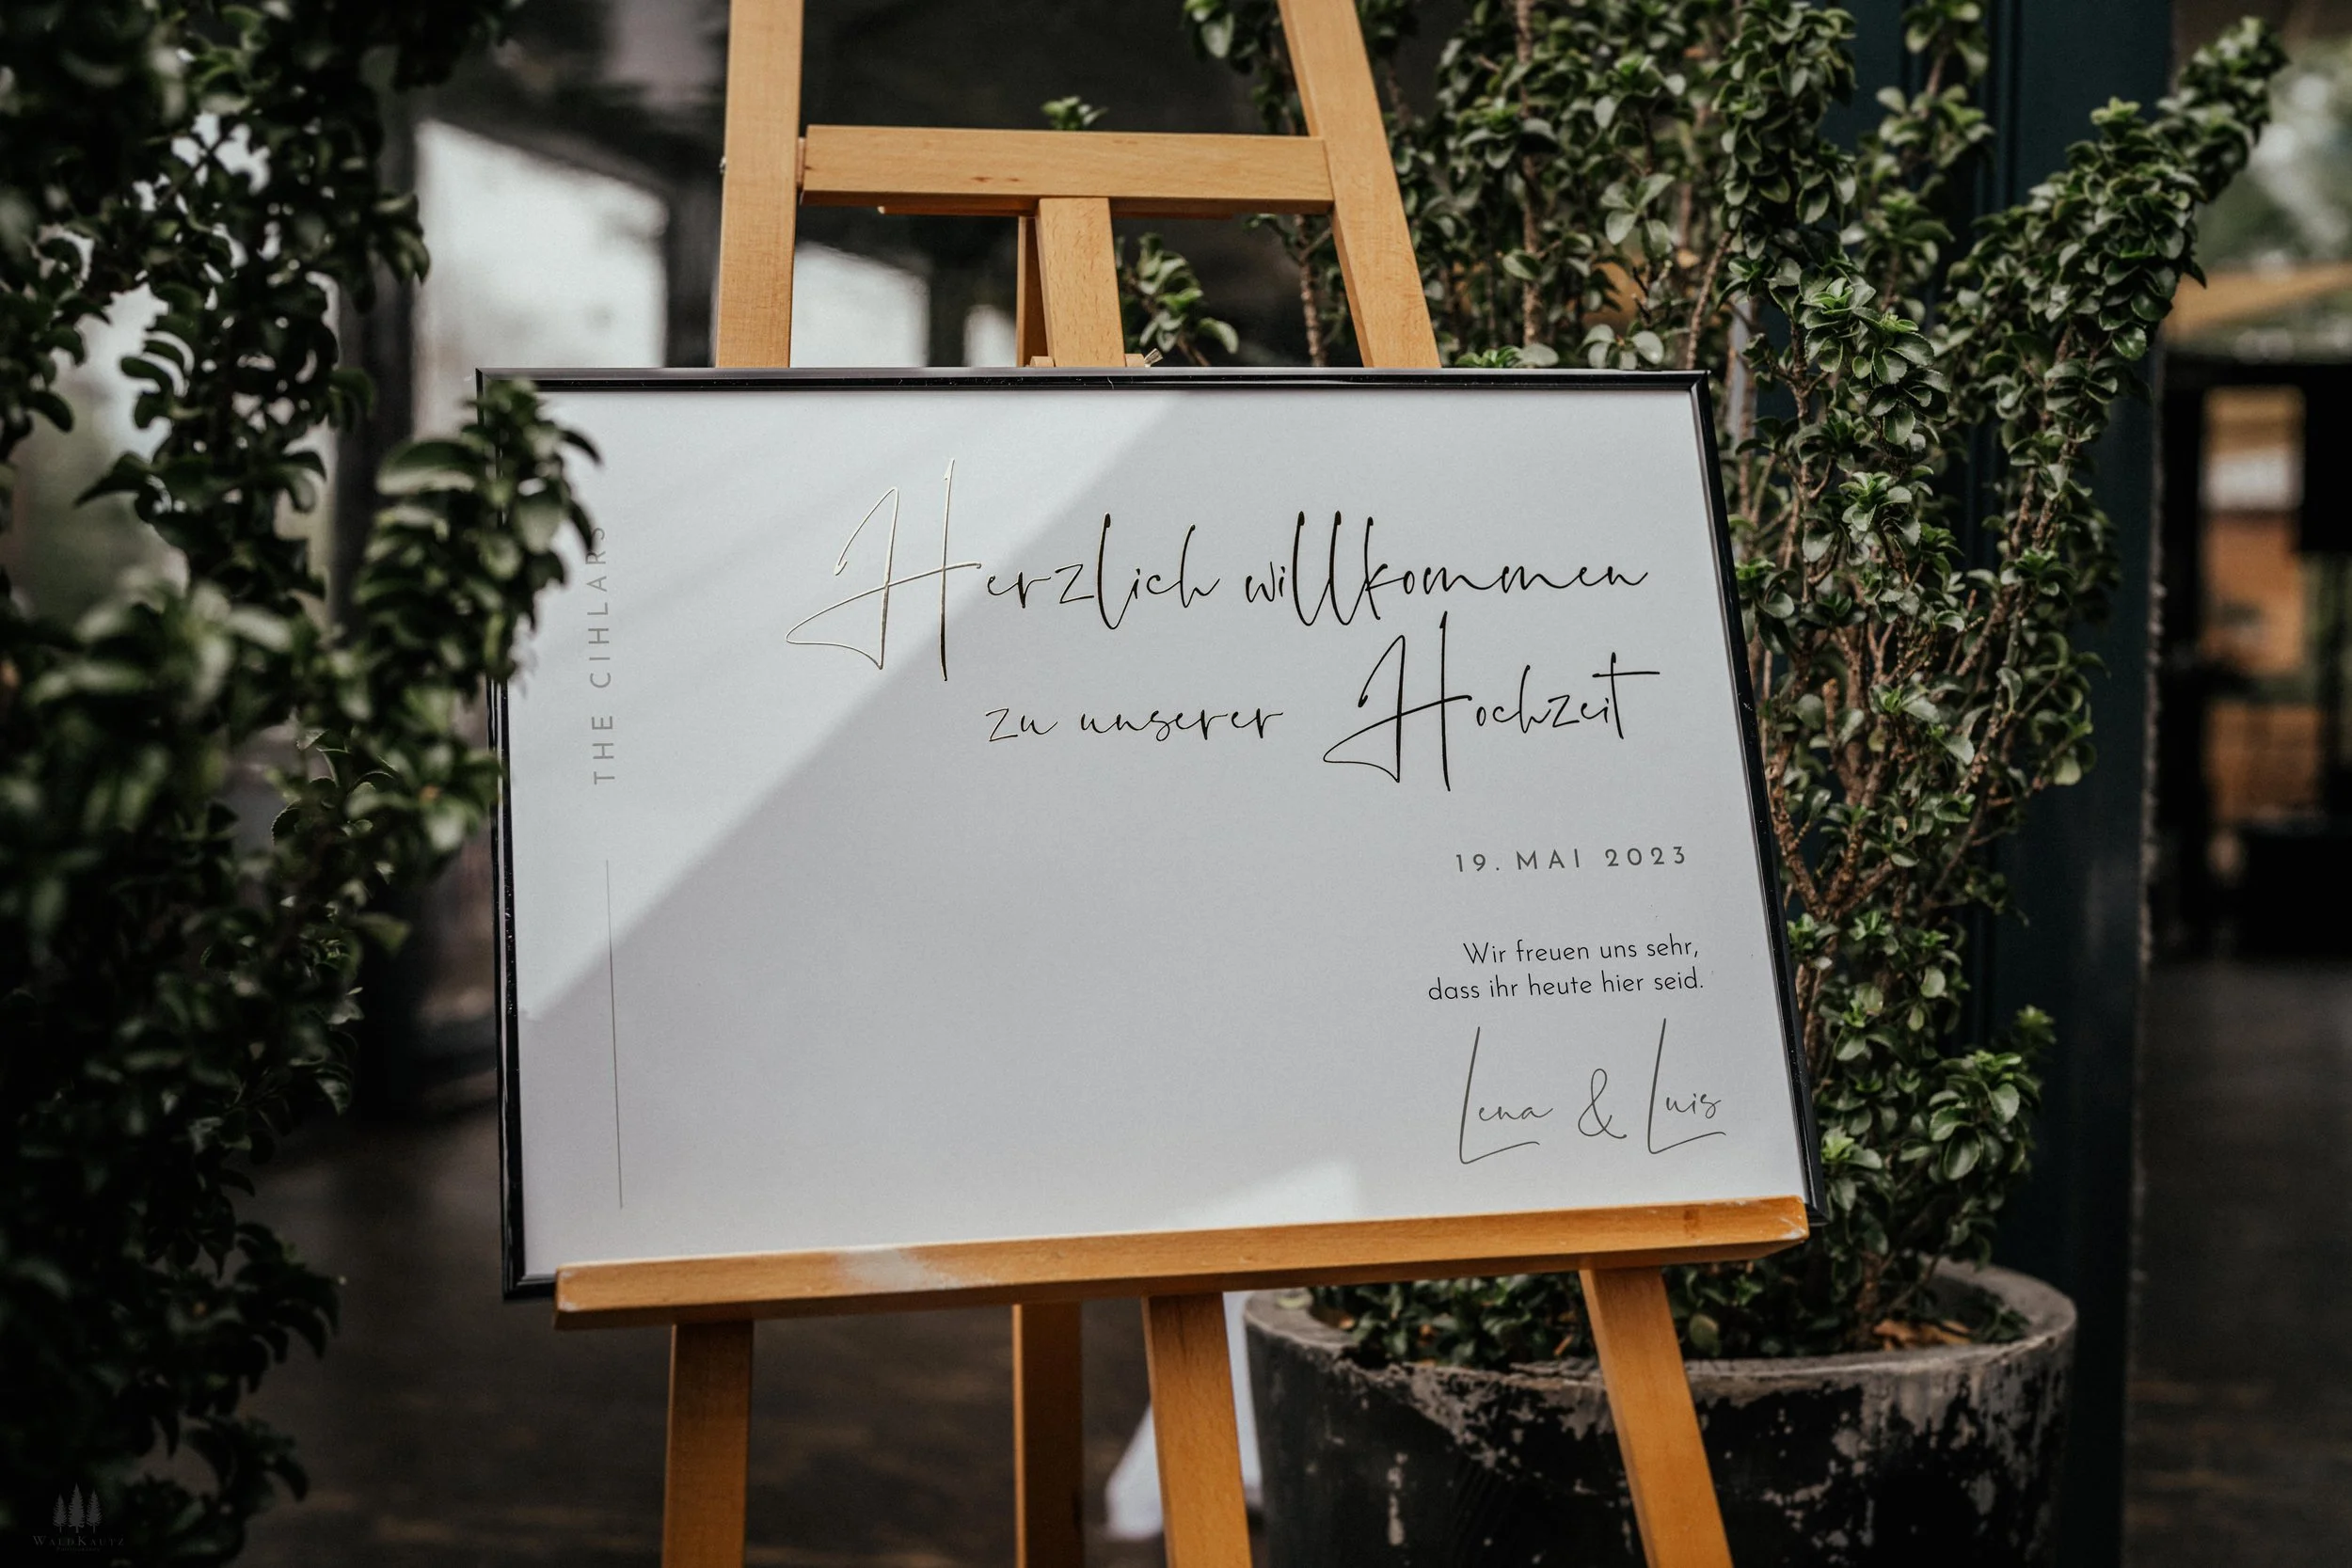 THE CIHLARS
Herzlich willkommen
zu unserer Hochzeit
19. MAI 2023
Wir freuen uns sehr,
dass ihr heute hier seid.
Lena & Luis
WALDKAUTZ